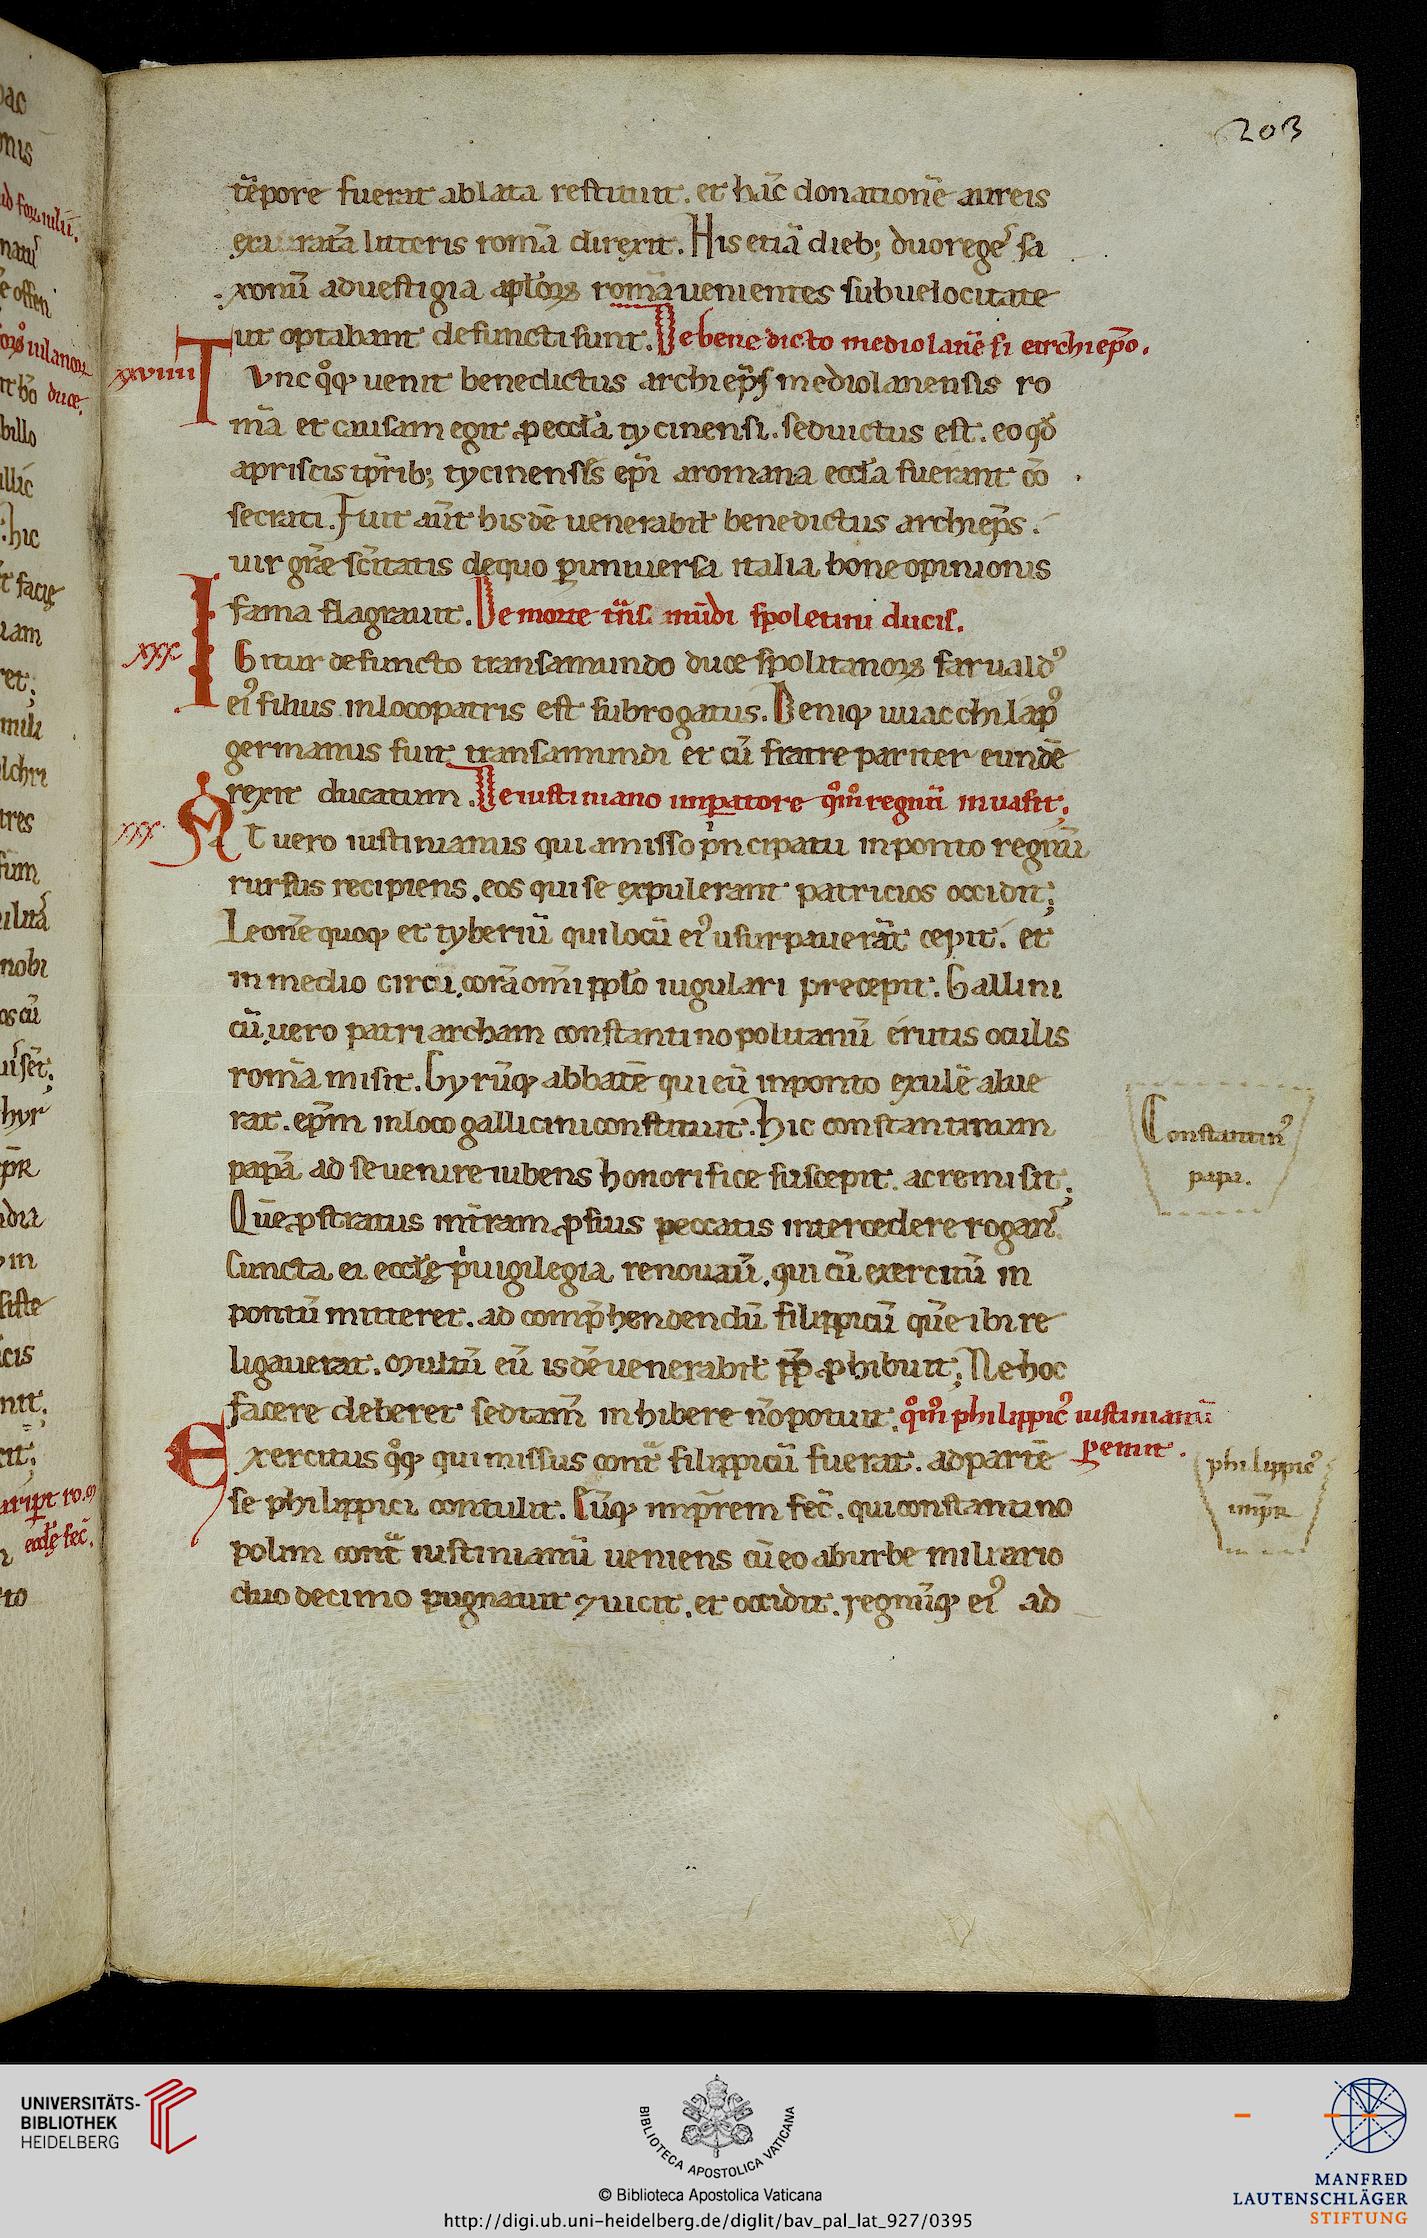 203
tēpore fuerat ablata restituit. et hāc donationē aureis
exaratā litteris romā direxit. His etiā dieb; duo regeſ sa
xonū ad uestigia aplōꝝ romā uenientes sub uelocitate
ut optabant defuncti sunt. De benedicto mediolanēsi archiepō.
xxviiii Tvnc qͦꝙ uenit benedictus archiepſ mediolanensis ro
mā et causam egit ꝓ ecclā tycinensi. sed uictus est. eo qđ
a priscis tp̄rib; tycinensis ep̄i a romana ecclā fuerant cō
secrati. Fuit aūt hisdē uenerabił benedictus archiep̄s.
uir grē scītatis de quo ꝑ uniuersa italia bone opinionis
fama flagrauit. De morte trīs mūdi spoletini ducis.
xxx IGitur defuncto transamundo duce spolitanoꝝ faruald᾽
ei᾽ filius in loco patris est subrogatus. Deniqꝫ uuacchilap᾽
germanus fuit transamundi et cū fratre pariter eundē
rexit ducatum. De iustiniano imꝑatore qͦm regnū inuasit;
xxx At uero iustinianus qui amisso pͥncipatu in ponto regnū
rursus recipiens. eos qui se expulerant patricios occidit;
Leonē quoqꝫ et tyberiū qui locū ei᾽ usurpauerāt cepit. et
in medio circū. corā omī ppło iugulari precepit. Gallini
cū. uero patriarcham constantinopolitanū erutis oculis
romā misit. Cyrūqꝫ abbatē qui eū in ponto exulē alue
rat. ep̄m in loco gallicini constituit. Hic constantinum
papā ad se uenire iubens honorifice suscepit. ac remisit;
Quē ꝓstratus in tr̄ram ꝓ suis peccatis intercedere rogans.
Cuncta ei eccłę pͥuigilegia renouauit. qui cū exercitū in
pontū mitteret. ad comp̄hendendū filippicū quē ibi re
ligauerat. multū eū isdē uenerabił pp̄ ꝓhibuit; Ne hoc
facere deberet sed tam̄ inhibere nō potuit. qͦm philippic᾽ iustinianū
ꝑemit.
Exercitus qͦꝙ qui missus contͣ filippicū fuerat. ad partē
se philippici contulit. Cūqꝫ imp̄rem fec̄. qui constantino
polim contͣ iustinianū ueniens cū eo ab urbe miliario
duo decimo pugnauit ⁊ uicit. et occidit. regnūqꝫ ei᾽ ad
Constantin᾽
papa.
philippic᾽
imp̄r
UNIVERSITÄTS-
BIBLIOTHEK
HEIDELBERG
BIBLIOTECA APOSTOLICA VATICANA
© Biblioteca Apostolica Vaticana
http://digi.ub.uni-heidelberg.de/diglit/bav_pal_lat_927/0395
MANFRED
LAUTENSCHLÄGER
STIFTUNG